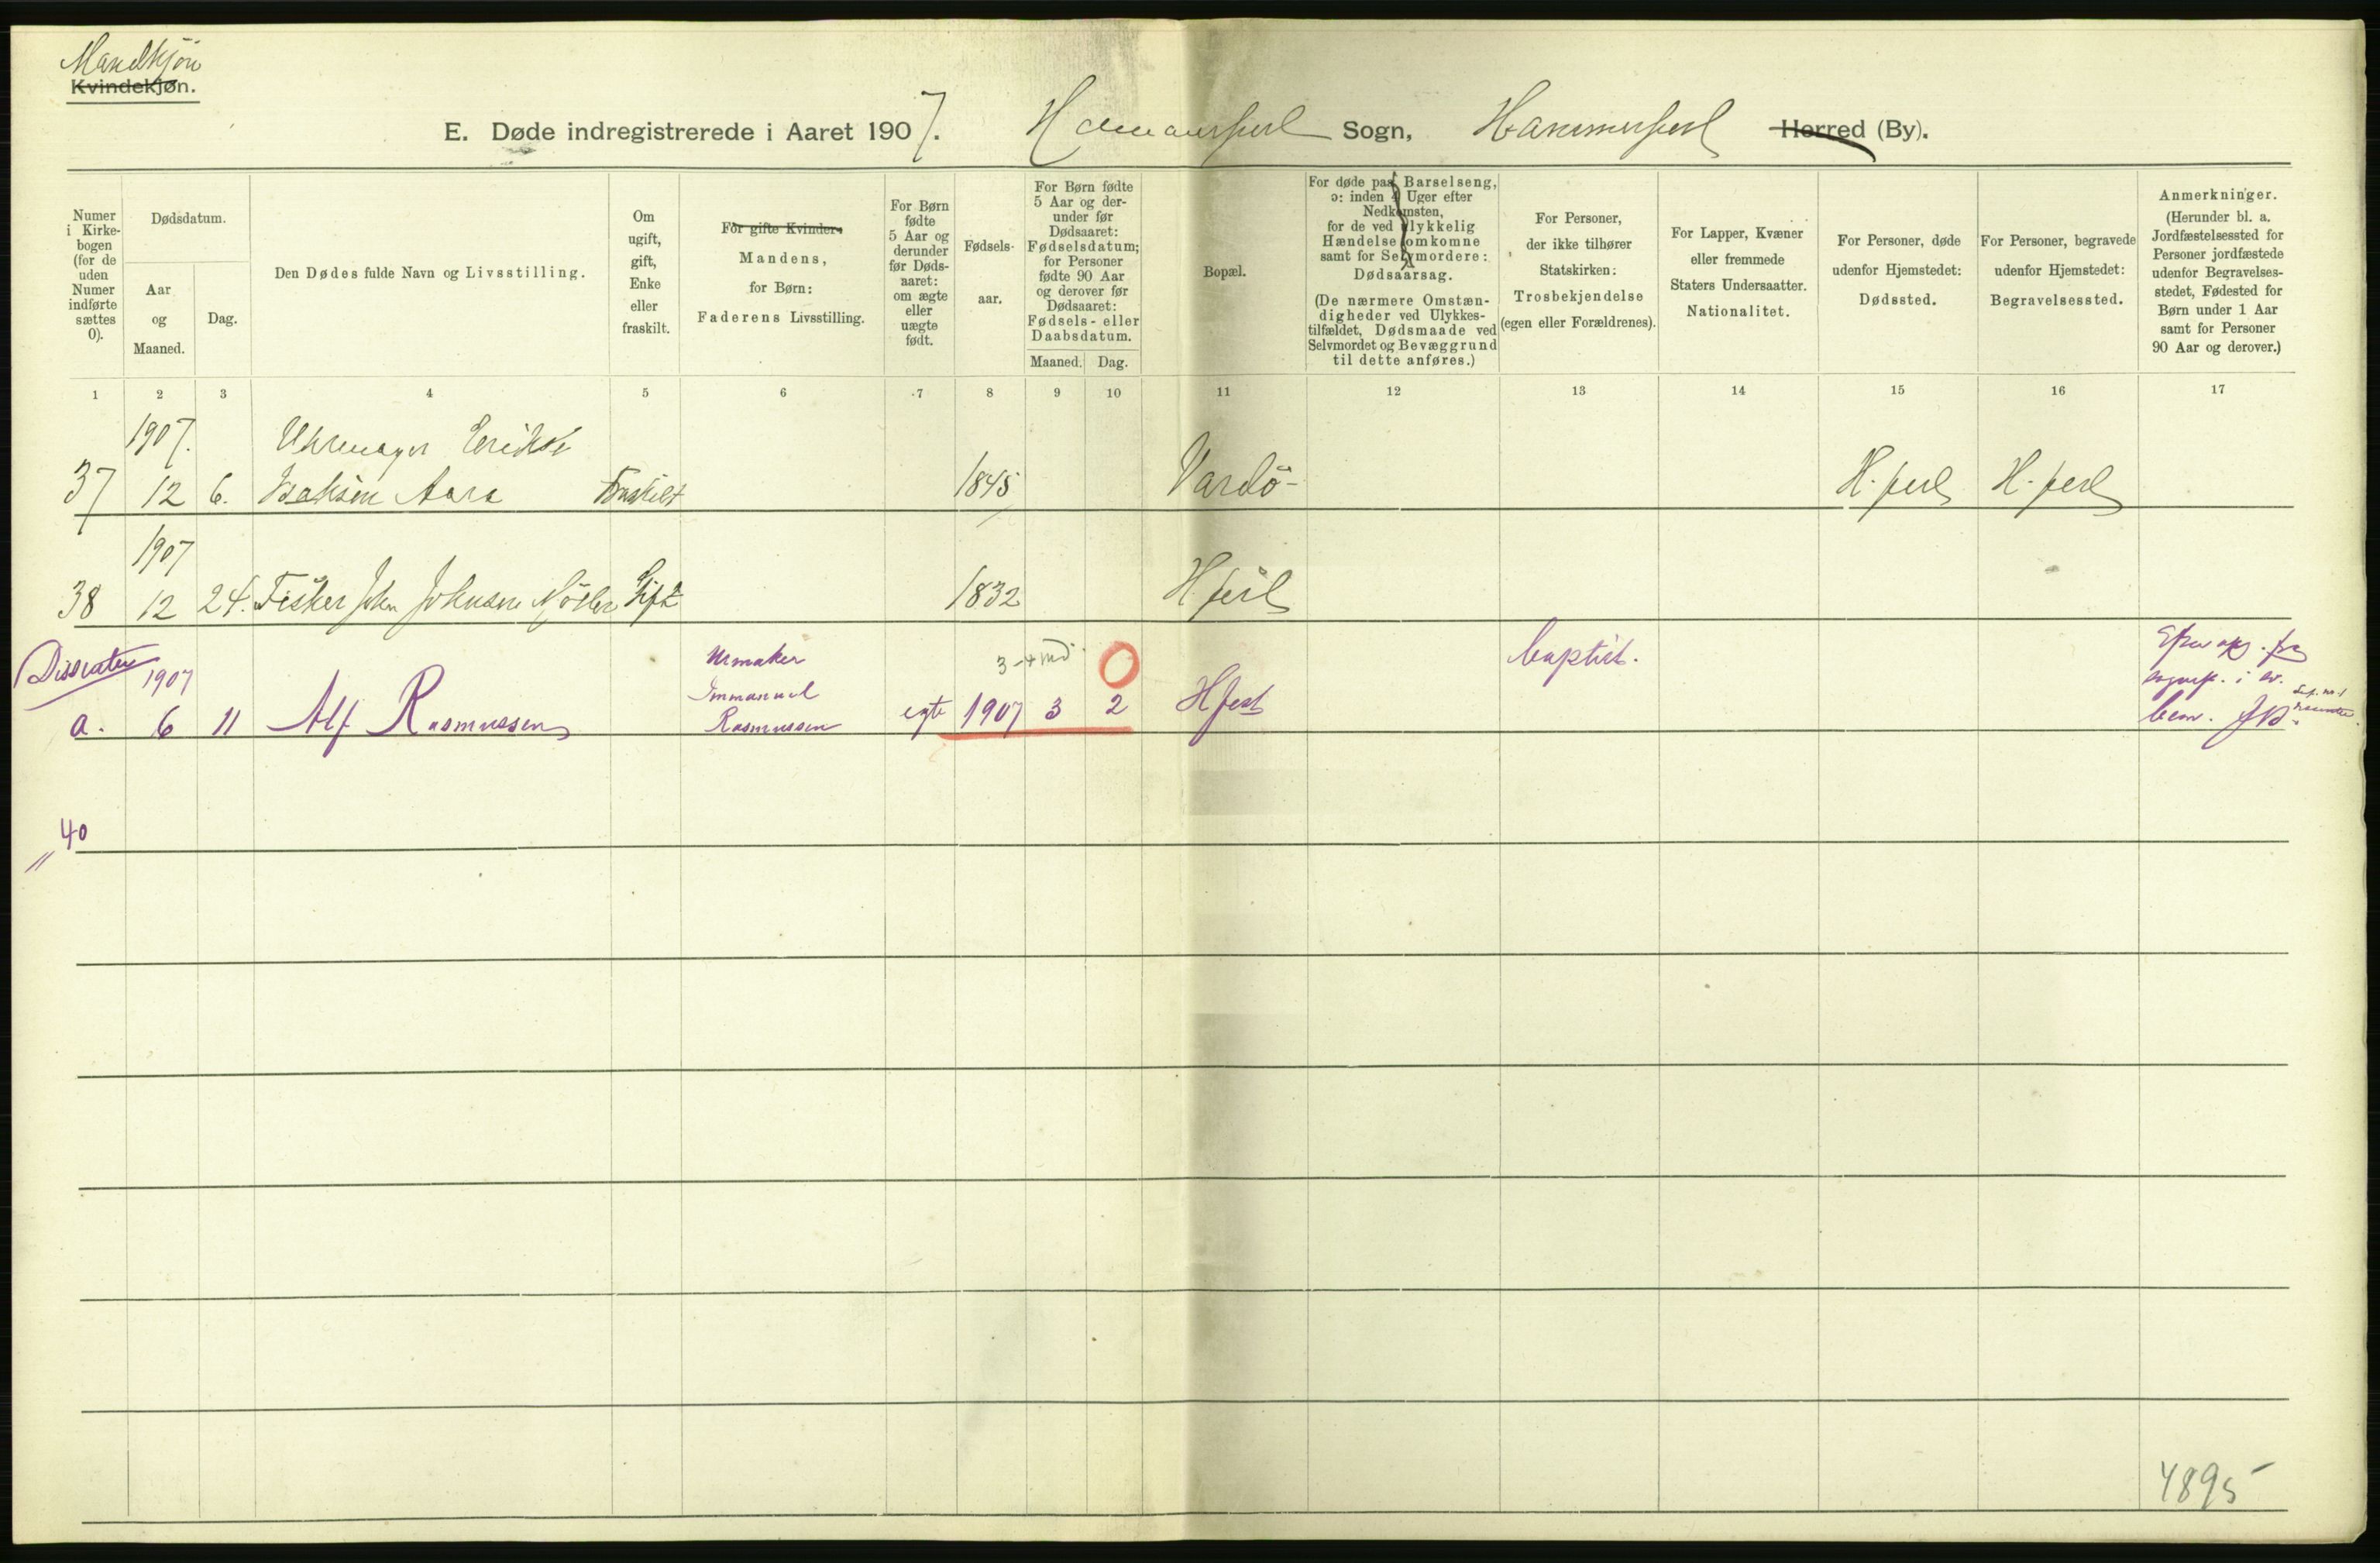 Mandkjøn
Kvindekjøn.
E. Døde indregistrerede i Aaret 1907. Hammerfest Sogn, Hammerfest Herred (By).
Numer
i Kirke-
bogen
(for de
uden
Numer
indførte
sættes
0).
Dødsdatum.
Aar
og
Maaned.
Dag.
Den Dødes fulde Navn og Livsstilling.
Om
ugift,
gift,
Enke
eller
fraskilt.
For gifte Kvinder:
Mandens,
for Børn:
Faderens Livsstilling.
For Børn
fødte
5 Aar og
derunder
før Døds-
aaret:
om ægte
eller
uægte
født.
Fødsels-
aar.
For Børn fødte
5 Aar og der-
under før
Dødsaaret:
Fødselsdatum;
for Personer
fødte 90 Aar
og derover før
Dødsaaret:
Fødsels- eller
Daabsdatum.
Maaned. Dag.
Bopæl.
For døde paa Barselseng,
ɔ: inden 4 Uger efter
Nedkomsten,
for de ved ulykkelig
Hændelse omkomne
samt for Selvmordere:
Dødsaarsag.
(De nærmere Omstæn-
digheder ved Ulykkes-
tilfældet, Dødsmaade ved
Selvmordet og Bevæggrund
til dette anføres.)
For Personer,
der ikke tilhører
Statskirken:
Trosbekjendelse
(egen eller Forældrenes).
For Lapper, Kvæner
eller fremmede
Staters Undersaatter.
Nationalitet.
For Personer, døde
udenfor Hjemstedet:
Dødssted.
For Personer, begravede
udenfor Hjemstedet:
Begravelsessted.
Anmerkninger.
(Herunder bl. a.
Jordfæstelsessted for
Personer jordfæstede
udenfor Begravelses-
stedet, Fødested for
Børn under 1 Aar
samt for Personer
90 Aar og derover.)
1 2 3 4 5 6 7 8 9 10 11 12 13 14 15 16 17
1907. Uhrmager
37 12 6. Isaksen Aara Fraskilt 1845 Vardö H.fest H.fest
1907
38 12 24. Fisker John Johnsen Gift 1832 Hfest
Dissenter 1907 Urmaker 3-4 md. 0 baptist.
Immanuel
a. 6 11 Alf Rasmussen Rasmussen egte 1907 3 2 Hfest
40
"
4895